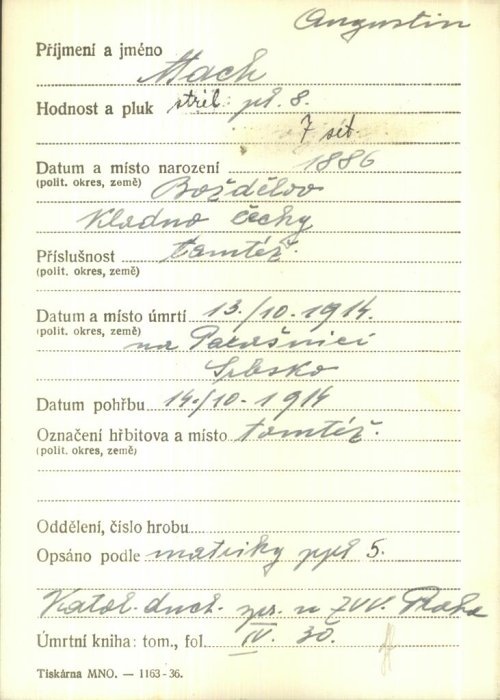 Augustin
Příjmení a jméno
Mach
Hodnost a pluk střel. pl. 8.
7 set.
Datum a místo narození 1886
(polit. okres, země) Božděľov
Kladno Čechy
Příslušnost tamtéž.
(polit. okres, země)
Datum a místo úmrtí 13./10.1914.
(polit. okres, země) na Parašnici
Srbsko
Datum pohřbu 14./10.1914
Označení hřbitova a místo tamtéž.
(polit. okres, země)
Oddělení, číslo hrobu
Opsáno podle matriky ppl 5.
Katol. duch. zpr. u ZVV. Praha
Úmrtní kniha: tom., fol. IV. 30.
Tiskárna MNO. — 1163-36.